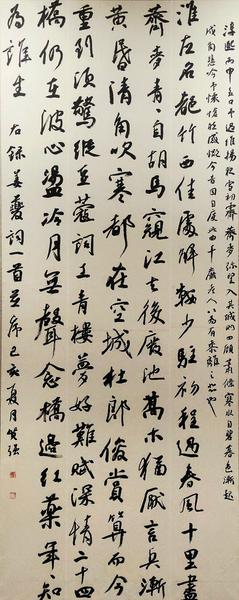 淳熙丙申至日予過維揚夜雪初霽薺麥弥望入其城則四顧蕭條寒水自碧暮色漸起
戍角悲吟予懷愴然感慨今昔因自度此曲千巖老人以為有黍離之悲也
淮左名都竹西佳處解鞍少駐初程過春風十里盡
薺麥青青自胡馬窺江去後廢池喬木猶厭言兵漸
黃昏清角吹寒都在空城杜郎俊賞算而今
重到須驚縱豆蔻詞工青樓夢好難賦深情二十四
橋仍在波心盪冷月無聲念橋邊紅藥年年知
為誰生
右錄姜夔詞一首並序己亥夏月